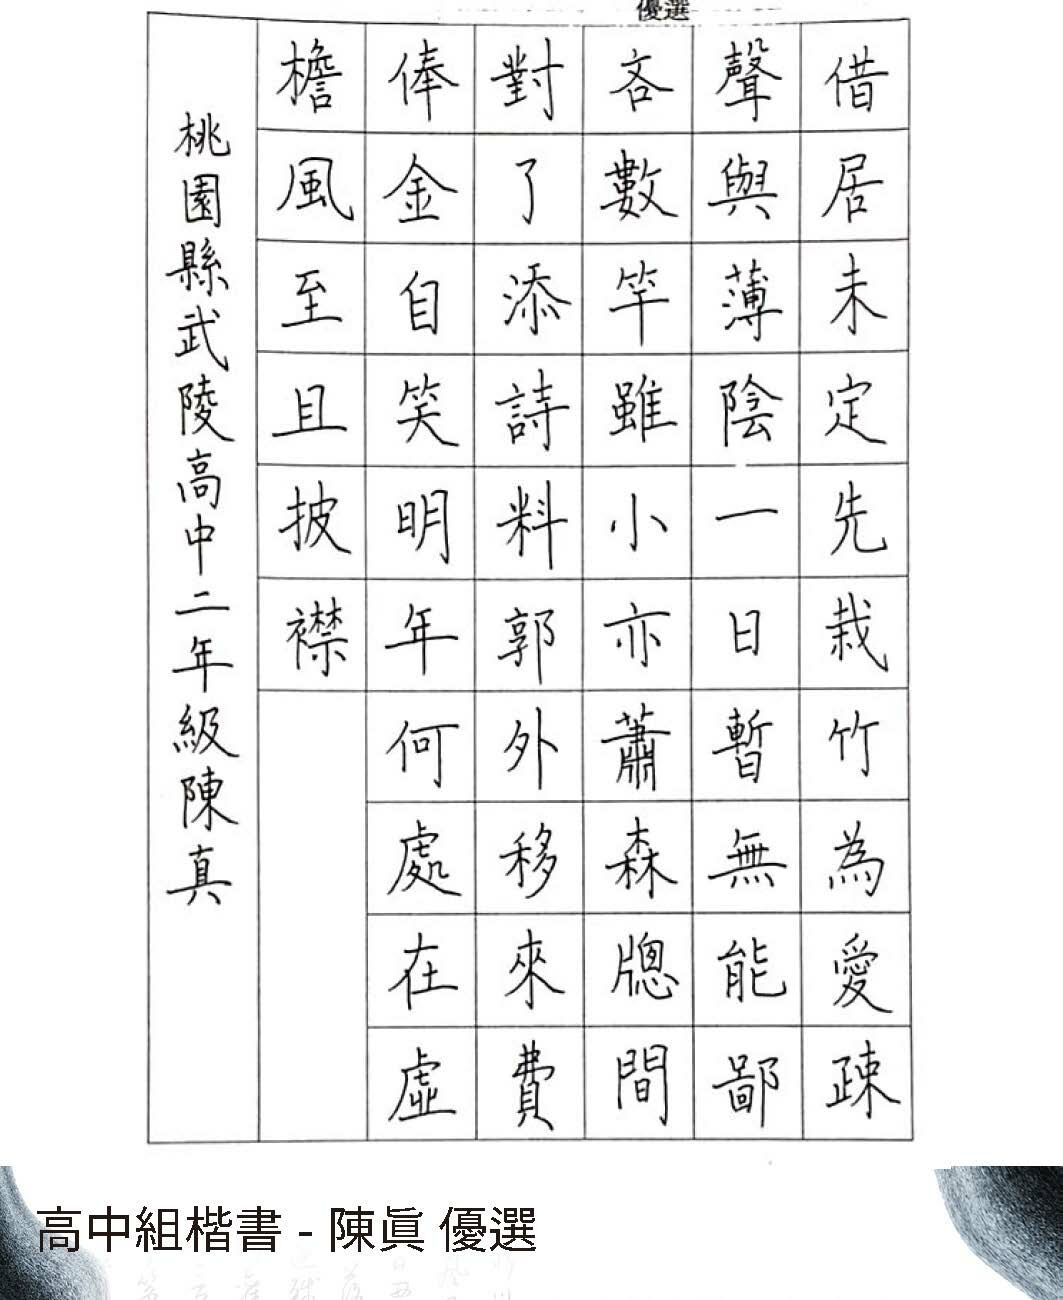 優選
借居未定先栽竹為愛疎
聲與薄陰一日暫無能鄙
吝數竿雖小亦蕭森牕間
對了添詩料郭外移來費
俸金自笑明年何處在虛
檐風至且披襟
桃園縣武陵高中二年級陳真
高中組楷書 - 陳眞 優選